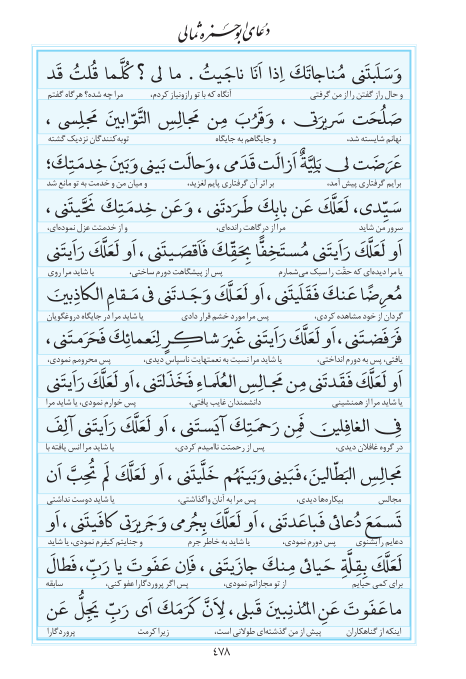 دعای ابوحمزه ثمالی
وَسَلَبتَنی مُناجاتَكَ اِذا اَنَا ناجَیتُ . ما لی ؟ كُلَّما قُلتُ قَد
و حال راز گفتن را از من گرفتی آنگاه که با تو رازونیاز کردم، مرا چه شده؟ هر گاه گفتم
صَلُحَت سَریرَتی ، وَقَرُبَ مِن مَجالِسِ التَّوّابینَ مَجلِسی ،
نهانم شایسته شد، و جایگاهم به جایگاه توبه‌کنندگان نزدیک گشته
عَرَضَت لی بَلِیَّةٌ اَزالَت قَدَمی ، وَحالَت بَینی وَبَینَ خِدمَتِكَ؛
برایم گرفتاری پیش آمد، بر اثر آن گرفتاری پایم لغزید، و میان من و خدمت به تو مانع شد
سَیِّدی، لَعَلَّكَ عَن بابِكَ طَرَدتَنی ، وَعَن خِدمَتِكَ نَحَّیتَنی ،
سرور من شاید مرا از درگاهت رانده‌ای، و از خدمتت عزل نموده‌ای،
اَو لَعَلَّكَ رَاَیتَنی مُستَخِفّاً بِحَقِّكَ فَاَقصَیتَنی ، اَو لَعَلَّكَ رَاَیتَنی
یا مرا دیده‌ای که حقّت را سبک می‌شمارم پس از پیشگاهت دورم ساختی، یا شاید مرا روی
مُعرِضًا عَنكَ فَقَلَیتَنی ، اَو لَعَلَّكَ وَجَدتَنی فی مَقامِ الكاذِبینَ
گردان از خود مشاهده کردی، پس مرا مورد خشم قرار دادی یا شاید مرا در جایگاه دروغگویان
فَرَفَضتَنی ، اَو لَعَلَّكَ رَاَیتَنی غَیرَ شاكِرٍ لِنَعمائِكَ فَحَرَمتَنی ،
یافتی، پس به دورم انداختی، یا شاید مرا نسبت به نعمتهایت ناسپاس دیدی، پس محرومم نمودی،
اَو لَعَلَّكَ فَقَدتَنی مِن مَجالِسِ العُلَماءِ فَخَذَلتَنی ، اَو لَعَلَّكَ رَاَیتَنی
یا شاید مرا از همنشینی دانشمندان غایب یافتی، پس خوارم نمودی، یا شاید مرا
فِی الغافِلینَ فَمِن رَحمَتِكَ آیَستَنی ، اَو لَعَلَّكَ رَاَیتَنی آلِفَ
در گروه غافلان دیدی، پس از رحمتت ناامیدم کردی، یا شاید مرا انس یافته با
مَجالِسِ البَطّالینَ، فَبَینی وَبَینَهُم خَلَّیتَنی ، اَو لَعَلَّكَ لَم تُحِبَّ اَن
مجالس بیکاره‌ها دیدی، پس مرا به آنان واگذاشتی، یا شاید دوست نداشتی
تَسمَعَ دُعائی فَباعَدتَنی ، اَو لَعَلَّكَ بِجُرمی وَجَریرَتی كافَیتَنی ، اَو
دعایم را بشنوی پس دورم نمودی، یا شاید به خاطر جرم و جنایتم کیفرم نمودی، یا شاید
لَعَلَّكَ بِقِلَّةِ حَیائی مِنكَ جازَیتَنی ، فَاِن عَفَوتَ یا رَبِّ، فَطالَ
برای کمی حیایم از تو مجازاتم نمودی، پس اگر پروردگارا عفو کنی، سابقه
ماعَفَوتَ عَنِ المُذنِبینَ قَبلی ، لِاَنَّ كَرَمَكَ اَی رَبِّ یَجِلُّ عَن
اینکه از گناهکاران پیش از من گذشته‌ای طولانی است، زیرا کرمت پروردگارا
٤٧٨